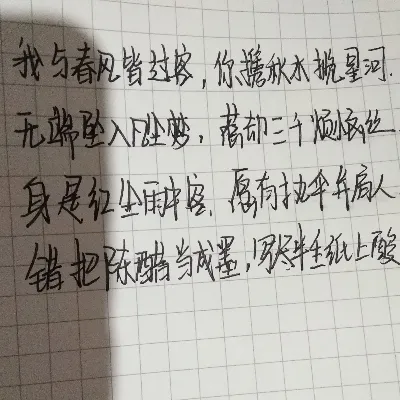 我与春风皆过客，你携秋水揽星河.
无端坠入凡尘梦，落却三千烦恼丝
身是红尘雨中客，愿有执伞弃局人
错把陈醋当成墨，写尽半生纸上酸